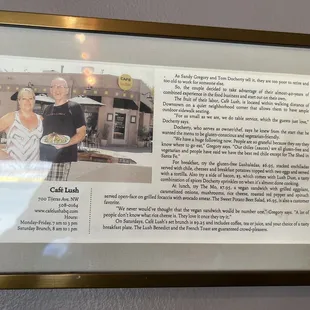 As Sandy Gregory and Tom Docherty tell it, they are too poor to retire and
too old to work for someone else.
So, the couple decided to take advantage of their almost-40-years of
combined experience in the food business and start out on their own.
The fruit of their labor, Café Lush, is located within walking distance of
Downtown on a quiet neighborhood corner that allows them to have ample
outdoor-sidewalk seating.
"For as small as we are, we do table service, which the guests just love,"
Docherty says.
Docherty, who serves as owner/chef, says he knew from the start that he
wanted the menu to be gluten-conscious and vegetarian-friendly.
"We have a huge following now. People are so grateful because they say they
know where to go eat," Gregory says. "Our chiles (sauces) are all gluten-free and
vegetarian and people have said we have the best red chile except for The Shed in
Santa Fe."
For breakfast, try the gluten-free Lushsladas, $6.95, stacked enchiladas
served with chile, cheeses and breakfast potatoes topped with two eggs and served
with a tortilla. Also try a side of bacon, $2, which comes with Lush Dust, a tasty
combination of spices Docherty sprinkles on when it's almost done cooking.
At lunch, try The Mo, $7.95, a vegan sandwich with grilled eggplant,
caramelized onions, mushrooms, rice cheese, roasted red pepper and spinach
served open-face on grilled focaccia with avocado smear. The Sweet Potato Beet Salad, $6.95, is also a customer
favorite.
"We never would've thought that the vegan sandwich would be number one," Gregory says. "A lot of
people don't know what rice cheese is. They love it once they try it."
On Saturdays, Café Lush's set brunch is $9.25 and includes coffee, tea or juice, and your choice of a tasty
breakfast plate. The Lush Benedict and the French Toast are guaranteed crowd-pleasers.
Café Lush
700 Tijeras Ave. NW
508-0164
www.cafelushabq.com
Hours:
Monday-Friday, 7 am to 3 pm
Saturday Brunch, 8 am to 1 pm